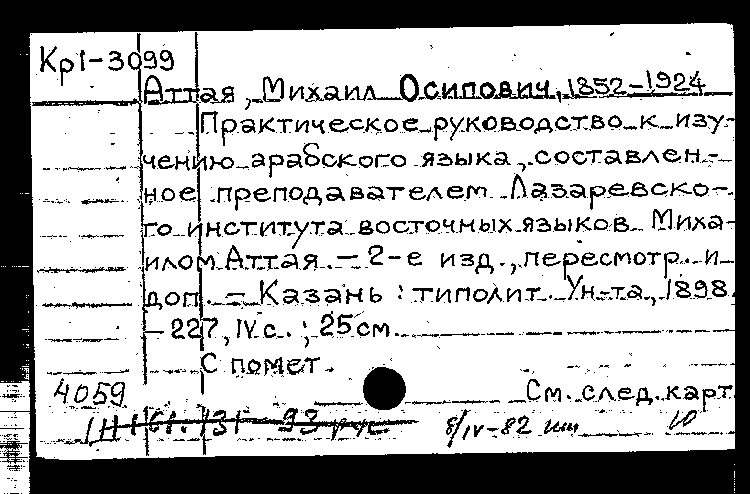 Кр1-3099
Аттая, Михаил Осипович, 1852-1924
Практическое руководство к изу-
чению арабского языка, составлен-
ное преподавателем Лазаревско-
го института восточных языков Миха-
илом Аттая. - 2-е изд., пересмотр. и
доп. - Казань : типолит. Ун-та, 1898.
- 227, IV с. ; 25 см.
С помет.
4059
См. след. карт.
8/IV-82